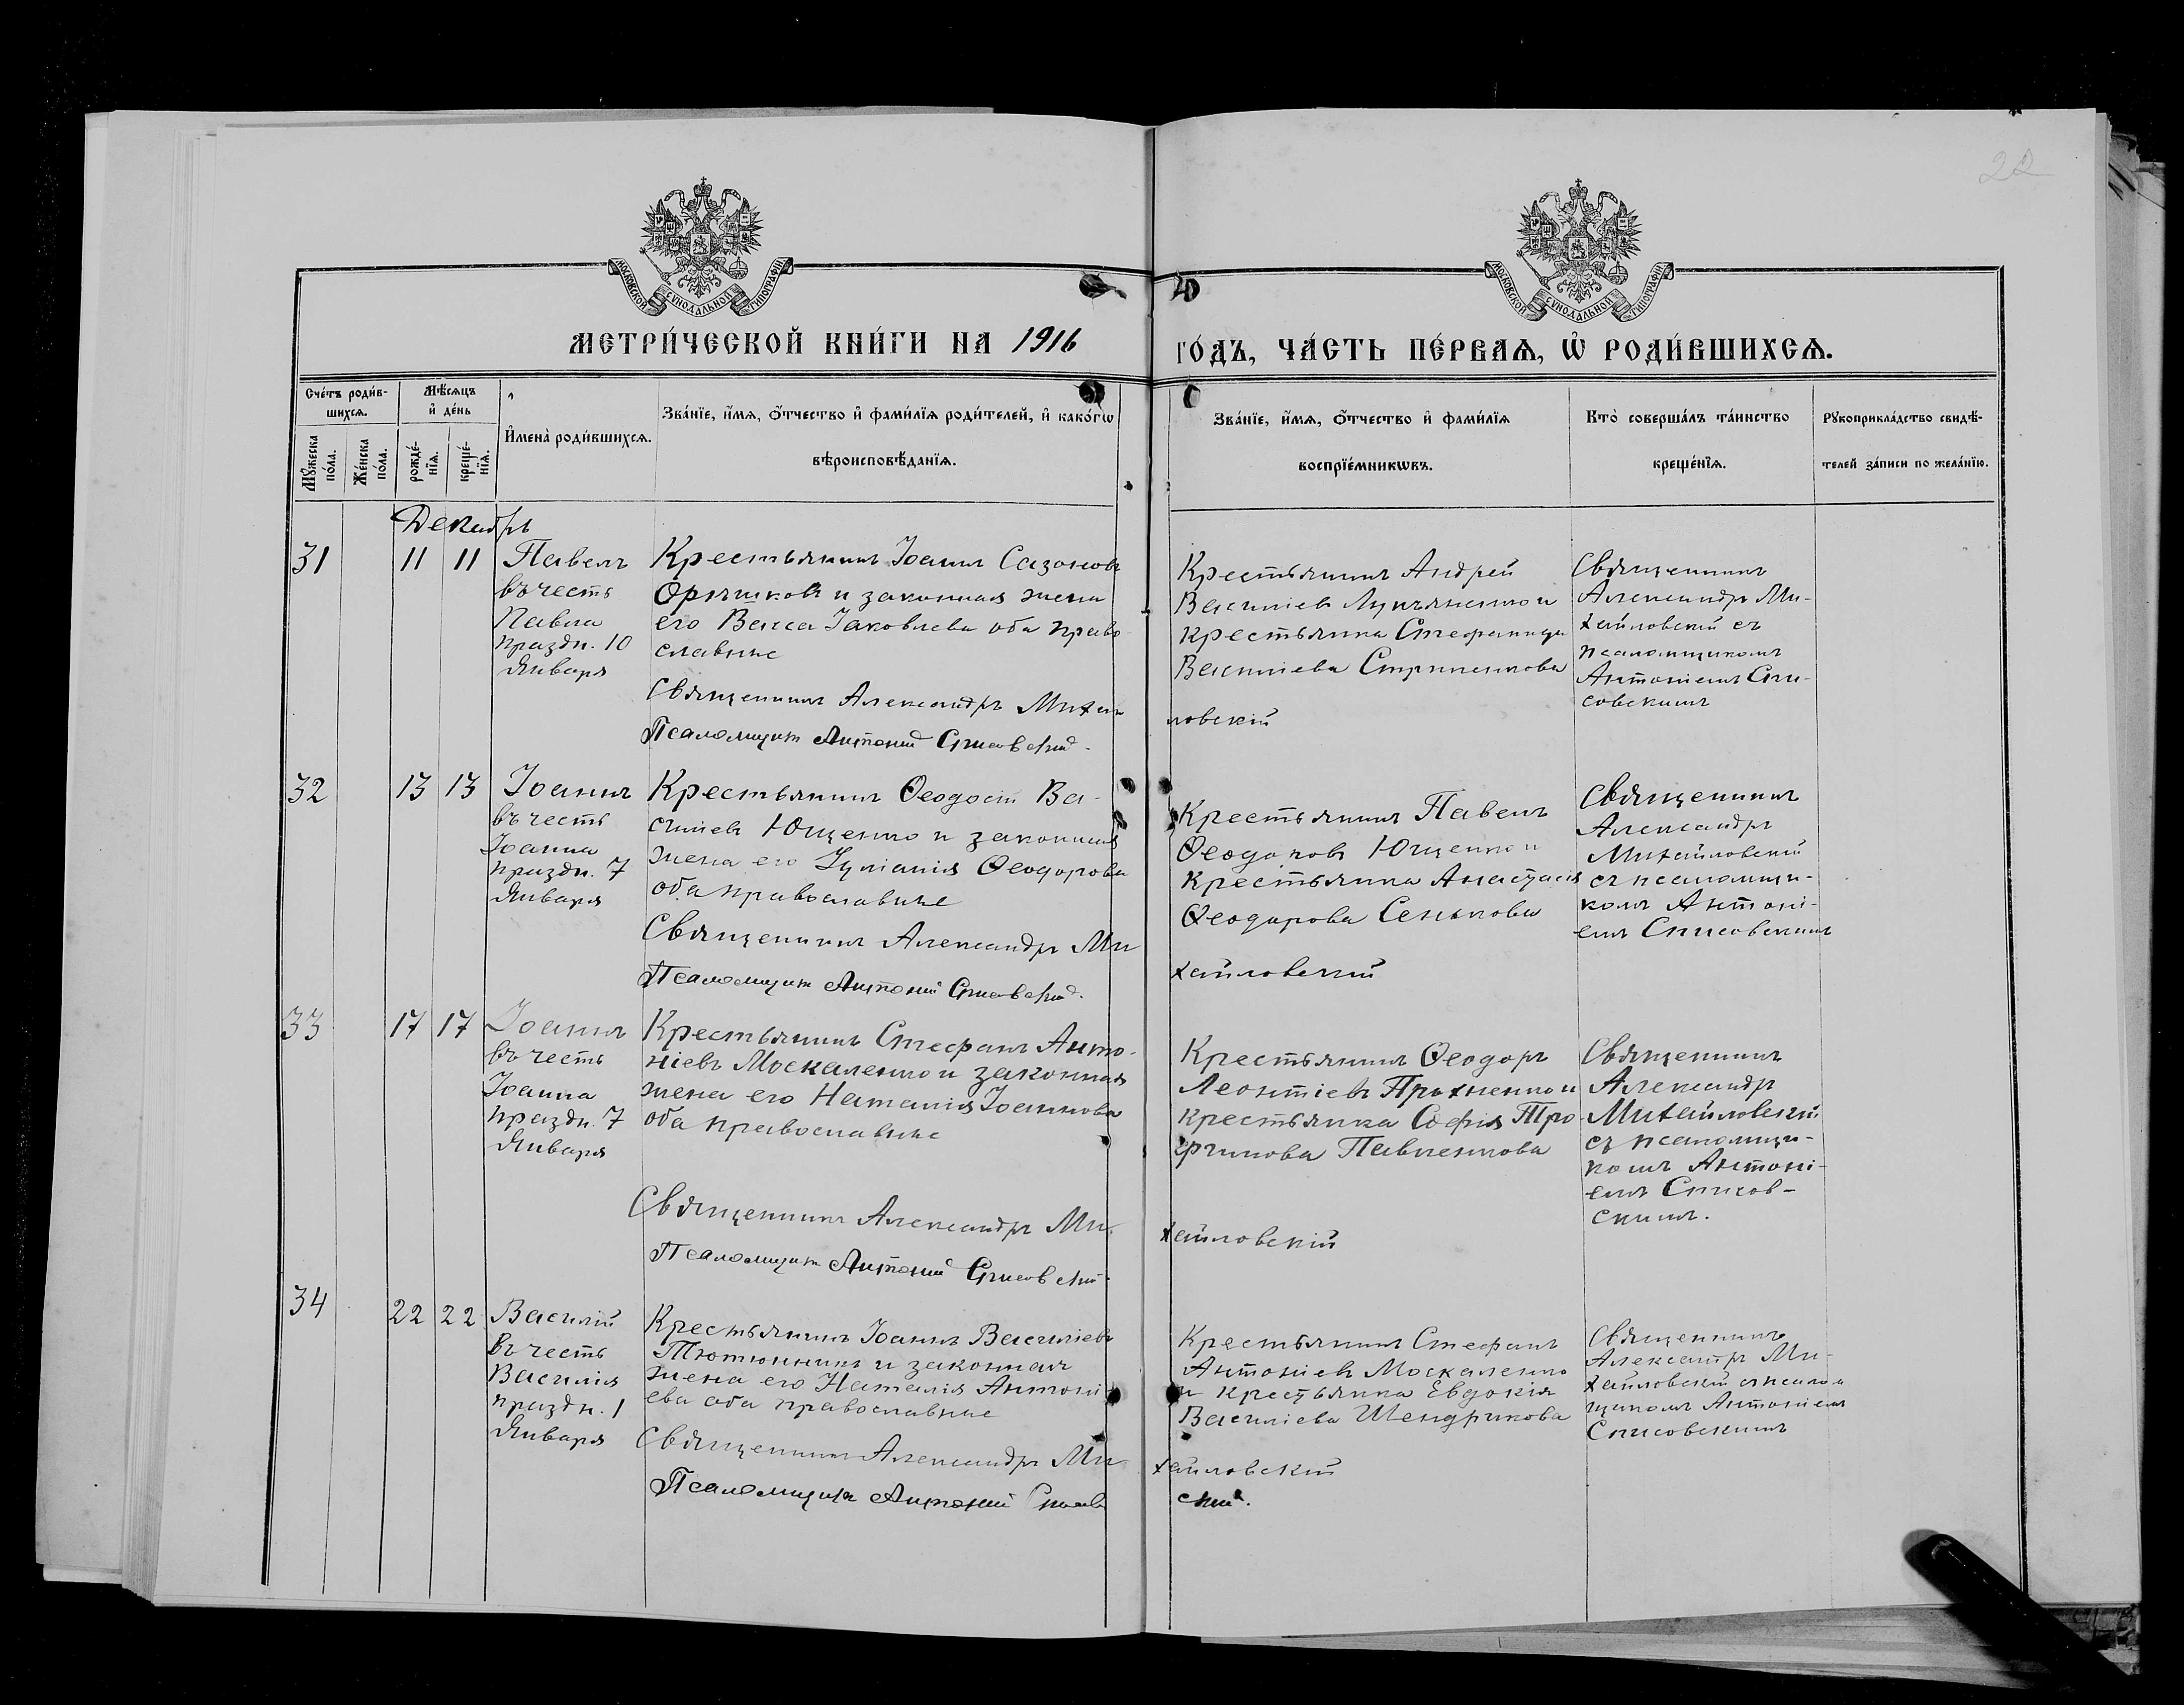 22
МОСКОВСКОЙ СѴНОДАЛЬНОЙ ТИПОГРАФІИ
МОСКОВСКОЙ СѴНОДАЛЬНОЙ ТИПОГРАФІИ
МЕТРИ́ЧЕСКОЙ КНИ́ГИ НА 1916
ГО́ДЪ, ЧА́СТЬ ПЕ́РВАѦ, Ѡ РОДИ́ВШИХСѦ.
Сче́тъ роди́в-
шихсѧ.
Мꙋ́жеска
по́ла.
Же́нска
по́ла.
Мѣ́сѧцъ
и҆ де́нь
рожде́-
нїѧ.
креще́-
нїѧ.
И҆мена̀ роди́вшихсѧ.
Зва́нїе, и҆́мѧ, ѻ҆́тчество и҆ фами́лїѧ роди́телей, и҆ како́гѡ
вѣроисповѣ́данїѧ.
Зва́нїе, и҆́мѧ, ѻ҆́тчество и҆ фами́лїѧ
воспрїе́мникѡвъ.
Кто̀ соверша́лъ та́инство
креще́нїѧ.
Рꙋкоприкла́дство свидѣ́-
телей за́писи по жела́нїю.
Декабрь
31
11
11
Павелъ
въ честь
Павла
праздн. 10
Января
Крестьянинъ Іоаннъ Сазоновъ
и законная жена
его Васса Іаковлева оба право
славные
Священникъ Александръ Михай
Псаломщикъ Антоній Списовскій.
Крестьянинъ Андрей
Василіевъ Лукьяненко и
крестьянка Стефанида
Василіева
ловскій
Священникъ
Александръ Ми-
хайловскій съ
псаломщикомъ
Антоніемъ Спи-
совскимъ
32
13
13
Іоаннъ
въ честь
Іоанна
праздн. 7
Января
Крестьянинъ Ѳеодосій Ва-
силіевъ Ющенко и законная
жена его Іуліанія Ѳеодорова
оба православные
Священникъ Александръ Ми
Псаломщикъ Антоній Списовскій.
Крестьянинъ Павелъ
Ѳеодоровъ Ющенко и
крестьянка Анастасія
Ѳеодорова Сенькова
хайловскій
Священникъ
Александръ
Михайловскій
съ псаломщи-
комъ Антоні-
емъ Списовскимъ
33
17
17
Іоаннъ
въ честь
Іоанна
праздн. 7
Января
Крестьянинъ Стефанъ Анто-
ніевъ Москаленко и законная
жена его Наталія Іоаннова
оба православные
Священникъ Александръ Ми
Псаломщикъ Антоній Списовскій.
Крестьянинъ Ѳеодоръ
Леонтіевъ Прохненко и
крестьянка Софія Тро
фимова Павленкова
хайловскій
Священникъ
Александръ
Михайловскій
съ псаломщи-
комъ Антоні-
емъ Списов-
скимъ.
34
22
22
Василій
въ честь
Василія
праздн. 1
Января
Крестьянинъ Іоаннъ Василіевъ
Тютюнникъ и законная
жена его Наталія Антоні
ева оба православные
Священникъ Александръ Ми
Псаломщикъ Антоній Списов
Крестьянинъ Стефанъ
Антоніевъ Москаленко
и крестьянка Евдокія
Василіева Шендрикова
хайловскій
скій.
Священникъ
Александръ Ми-
хайловскій съ псалом
щикомъ Антоніемъ
Списовскимъ